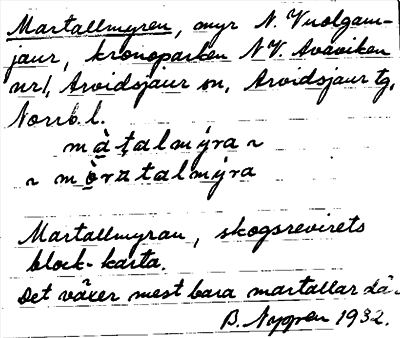 Martallmyren, myr N. Vuolgam-
jaur, kronoparken NV. Avaviken
nr 1, Arvidsjaur sn, Arvidsjaur tg,
Norrb. l.
màṭalmýra ~
~ mòratalmýra
Martallmyran, skogsrevirets
block-karta.
Det växer mest bara martallar där.
B. Nygren 1932.